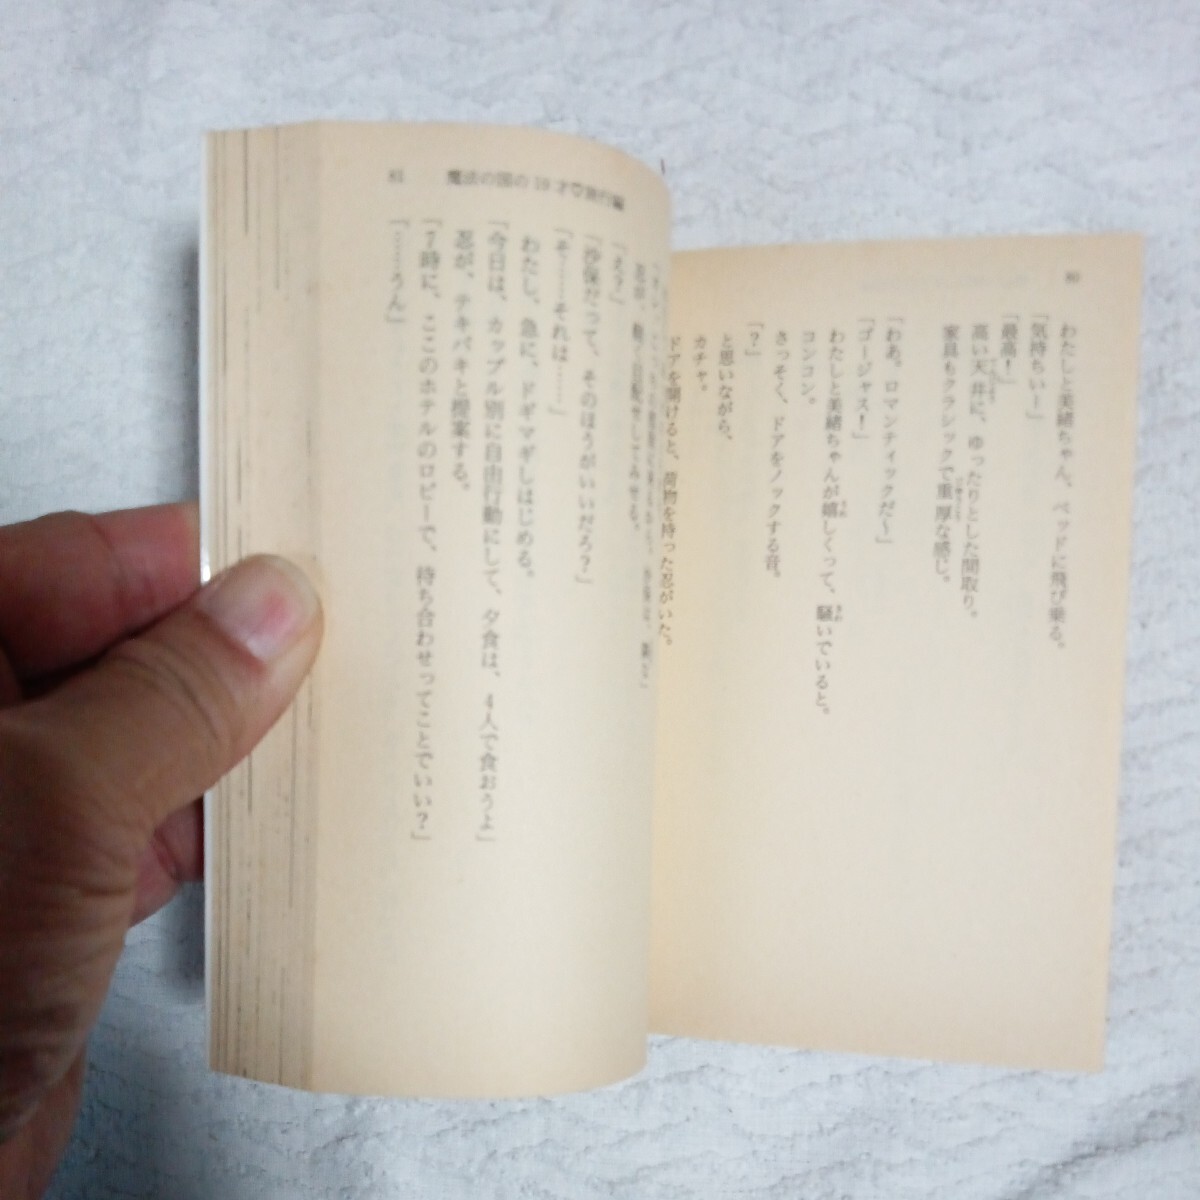 80
わたしと美緒ちゃん、ベッドに飛び乗る。
「気持ちいー」
「最高！」
高い天井に、ゆったりとした間取り。
家具もクラシックで重厚な感じ。
「わあ。ロマンティックだ～」
「ゴージャス！」
わたしと美緒ちゃんが嬉しくって、騒いでいると。
コンコン。
さっそく、ドアをノックする音。
「？」
と思いながら、
カチャ。
ドアを開けると、荷物を持った忍がいた。
81 魔法の国の19才♡旅行編
忍が、軽く目配せしてみせる。
「え？」
「沙保だって、そのほうがいいだろ？」
「そ……それは……」
わたし、急に、ドギマギしはじめる。
「今日は、カップル別に自由行動にして、夕食は、4人で食おうよ」
忍が、テキパキと提案する。
「7時に、ここのホテルのロビーで、待ち合わせってことでいい？」
「……うん」